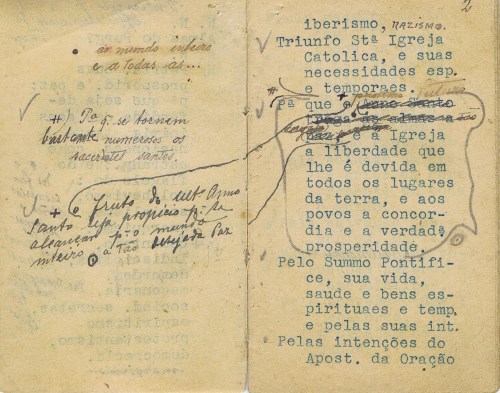 ao mundo inteiro
e a todas as...
+) Pª q. se tornem
bastante numerosos os
sacerdotes santos.
+ O fruto do ult. Anno
Santo seja propicio pª se
alcançar pª o mundo
inteiro a tão desejada Paz
2
iberismo, NAZISMO.
Triunfo Stª Igreja
Catolica, e suas
necessidades esp.
e temporaes.
pª que o Anno Santo
traga às almas a
paz e à Igreja
a liberdade que
lhe é devida em
todos os lugares
da terra, e aos
povos a concor-
dia e a verdadª
prosperidade.
Pelo Summo Pontifi-
ce, sua vida,
saude e bens es-
pirituaes e temp.
e pelas suas int.
Pelas intenções do
Apost. da Oração